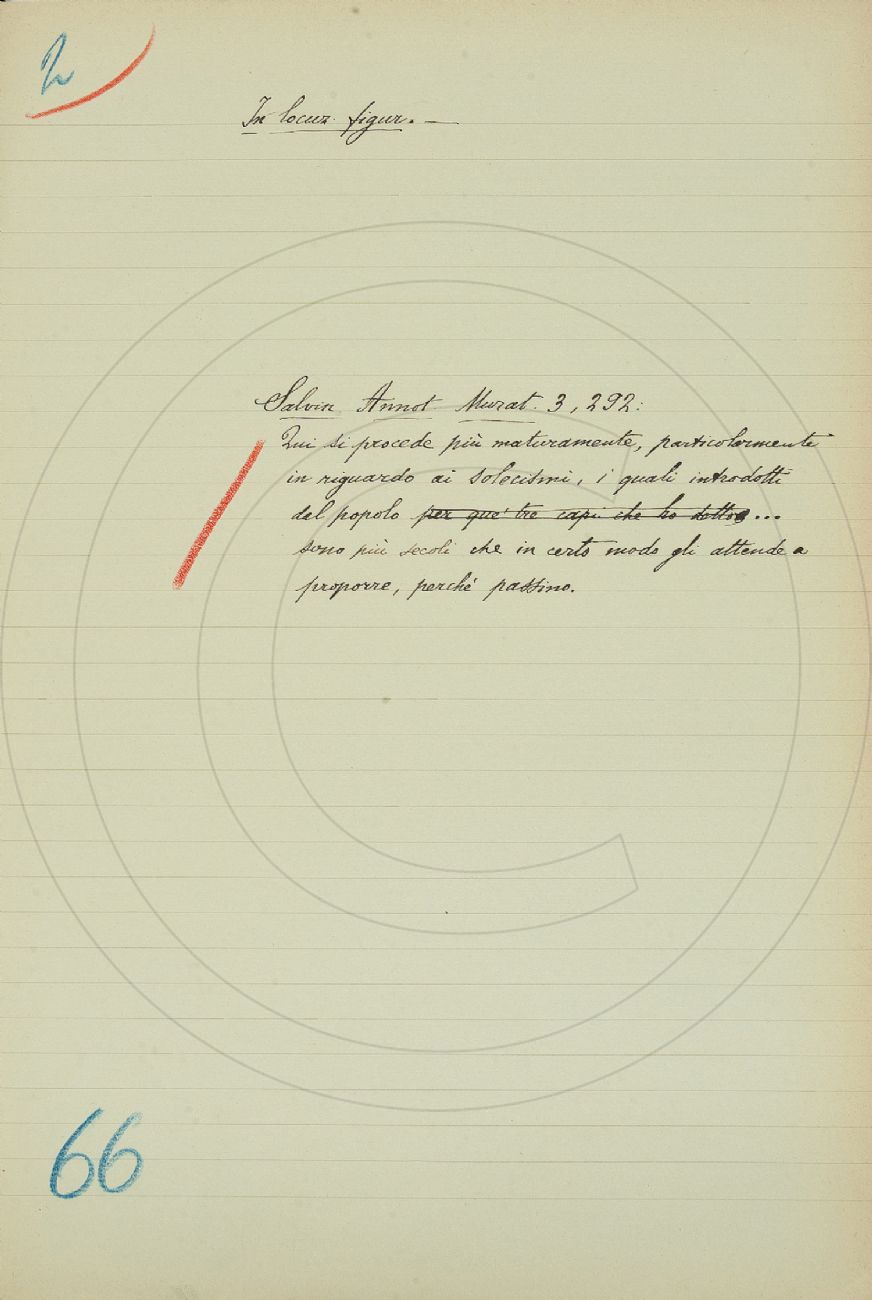 2
In locuz. figur. —
Salvin. Annot. Murat. 3, 292:
Qui si procede più maturamente, particolarmente
in riguardo ai solecismi, i quali introdotti
dal popolo per que' tre capi che ho detto...
sono più secoli che in certo modo gli attende a
proporre, perché passino.
66